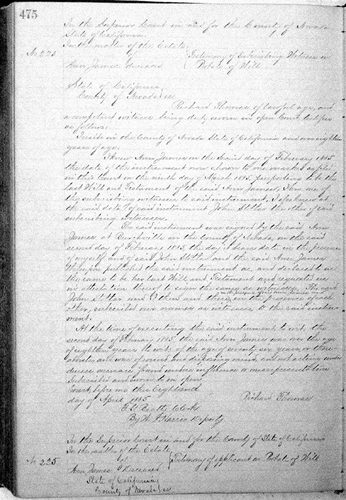 475
In the Superior Court in and for the County of Nevada
State of California
In the matter of the Estate
No 225 Testimony of Subscribing Witness on
Ann James Deceased Probate of Will
State of California
County of Nevada
Richard Thomas of lawful age, and
a competent witness being duly sworn in open Court testifies
as follows.
I reside in the County of Nevada State of California and am eighteen
years of age.
I knew Ann James on the second day of February 1885
the date of the instrument now shown to me marked as filed
in this Court on the ninth day of March 1885 purporting to be the
last Will and Testament of the said Ann James. I am one of
the subscribing witnesses to said instrument. I also knew at
the said date of said instrument John the other of said
subscribing witnesses.
The said instrument was signed by the said Ann
James at in the County of Nevada, on the said
second day of February 1885 the day it bears date in the presence
of myself and of said John and the said Ann James
published the said instrument as, and declared to us
the same to be her last Will and Testament and requested us
in attestation thereof to sign the same as witnesses. The said
John and I then and there, in the presence of each
other, subscribed our names as witnesses to the said instru-
ment.
At the time of executing the said instrument to wit the
second day of February 1885 the said Ann James was over the age
of eighteen years
was of sound and disposing mind, and not acting under
duress menace, fraud undue influence or misrepresentation
Subscribed and sworn to in open
Court before me this
day of April 1885 Richard Thomas
Clerk
By Deputy
In the Superior Court in and for the County of State of California
In the matter of the Estate
No 225 Testimony of applicant on Probate of Will
Ann James Deceased
State of California
County of Nevada